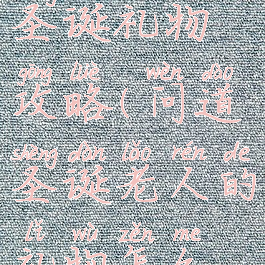 圣诞礼物
gōng lüè wèn dào
攻略(问道
shèng dàn lǎo rén de
圣诞老人的
lǐ wù zěn me